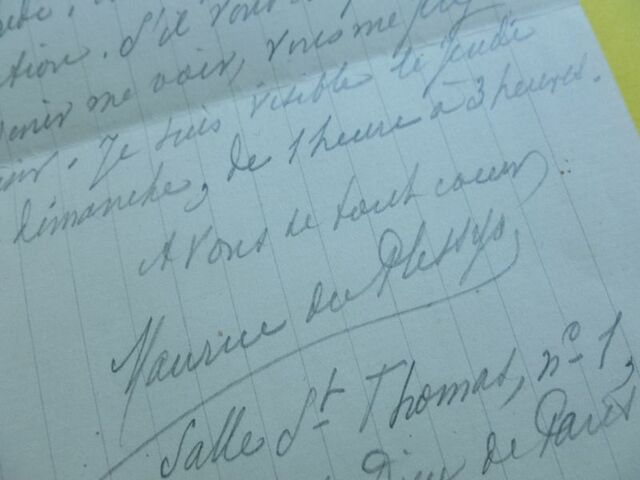 tion. S'il vous
venir me voir, vous me
Je suis visible le jeudi
dimanche, de 1 heure à 3 heures.
A vous de tout coeur
Maurice du Plessys,
Salle St Thomas, no 1,
Dieu de Paris